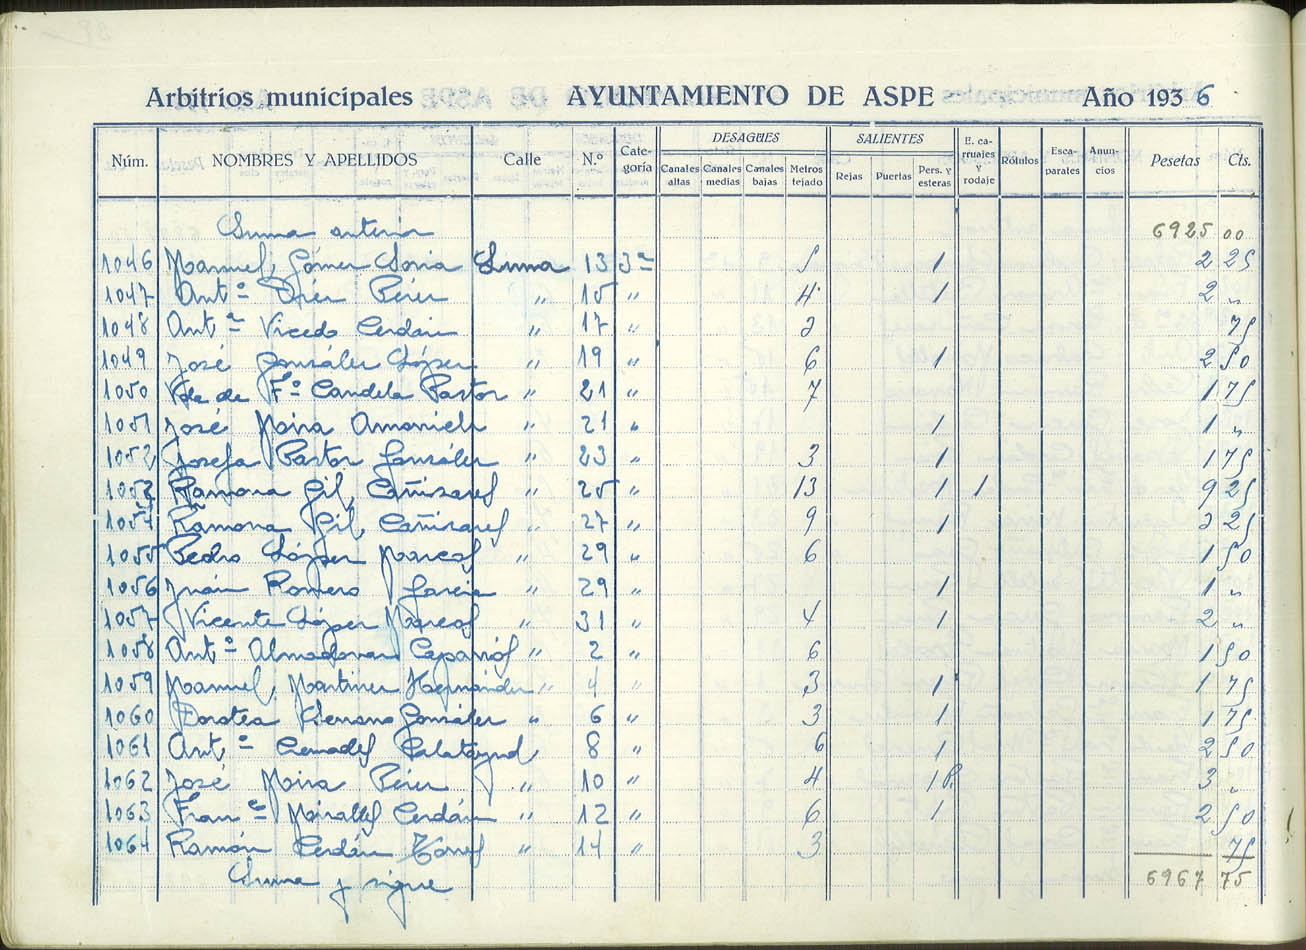 Arbitrios municipales AYUNTAMIENTO DE ASPE Año 1936
Núm. NOMBRES Y APELLIDOS Calle N.º Cate-goría DESAGÜES Canales altas Canales medias Canales bajas Metros tejado SALIENTES Rejas Puertas Pers. y esteras E. ca-rruales y rodaje Rótulos Esca-parates Anun-cios Pesetas Cts.
Suma anterior 6925 00
1046 Manuel Gómez Soria Luna 13 3ª 5 1 2 25
1047 Antº Díez Pérez " 15 " 4 1 2 "
1048 Antª Vicedo Cerdán " 17 " 3 75
1049 José González López " 19 " 6 1 2 50
1050 Vda de Fº Candela Pastor " 21 " 7 1 75
1051 José Mira " 21 " 1 1 "
1052 Josefa Pastor González " 23 " 3 1 1 75
1053 Ramona Gil Cañizares " 25 " 13 1 1 9 25
1054 Ramona Gil Cañizares " 27 " 9 1 3 25
1055 Pedro López " 29 " 6 1 50
1056 Juán Romero García " 29 " 1 1 "
1057 Vicente López " 31 " 4 1 2 "
1058 Antº Almodovar " 2 " 6 1 50
1059 Manuel Martínez Hernández " 4 " 3 1 1 75
1060 Dorotea Serrano González " 6 " 3 1 1 75
1061 Antº Cremades Calatayud " 8 " 6 1 2 50
1062 José Mira Pérez " 10 " 4 1 P. 3 "
1063 Franᶜᵒ Miralles Cerdán " 12 " 6 1 2 50
1064 Ramón Cerdán Torres " 14 " 3 75
Suma y sigue 6967 75